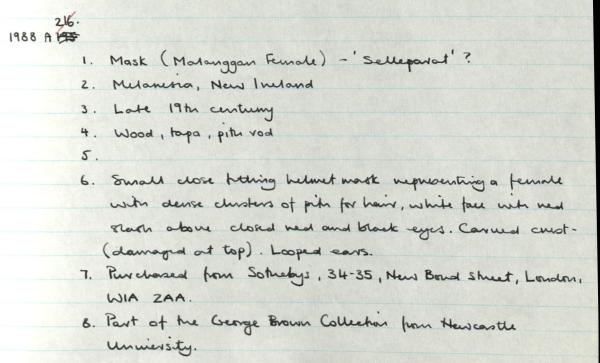 216.
1988 A 195
1. Mask (Malanggan Female) - 'Selleparat' ?
2. Melanesia, New Ireland
3. Late 19th century
4. Wood, tapa, pith rod
5.
6. Small close fitting helmet mask representing a female
with dense clusters of pith for hair, white face with red
slash above closed red and black eyes. Carved crest-
(damaged at top). Looped ears.
7. Purchased from Sothebys, 34-35, New Bond Street, London,
W1A 2AA.
8. Part of the George Brown Collection from Newcastle
University.